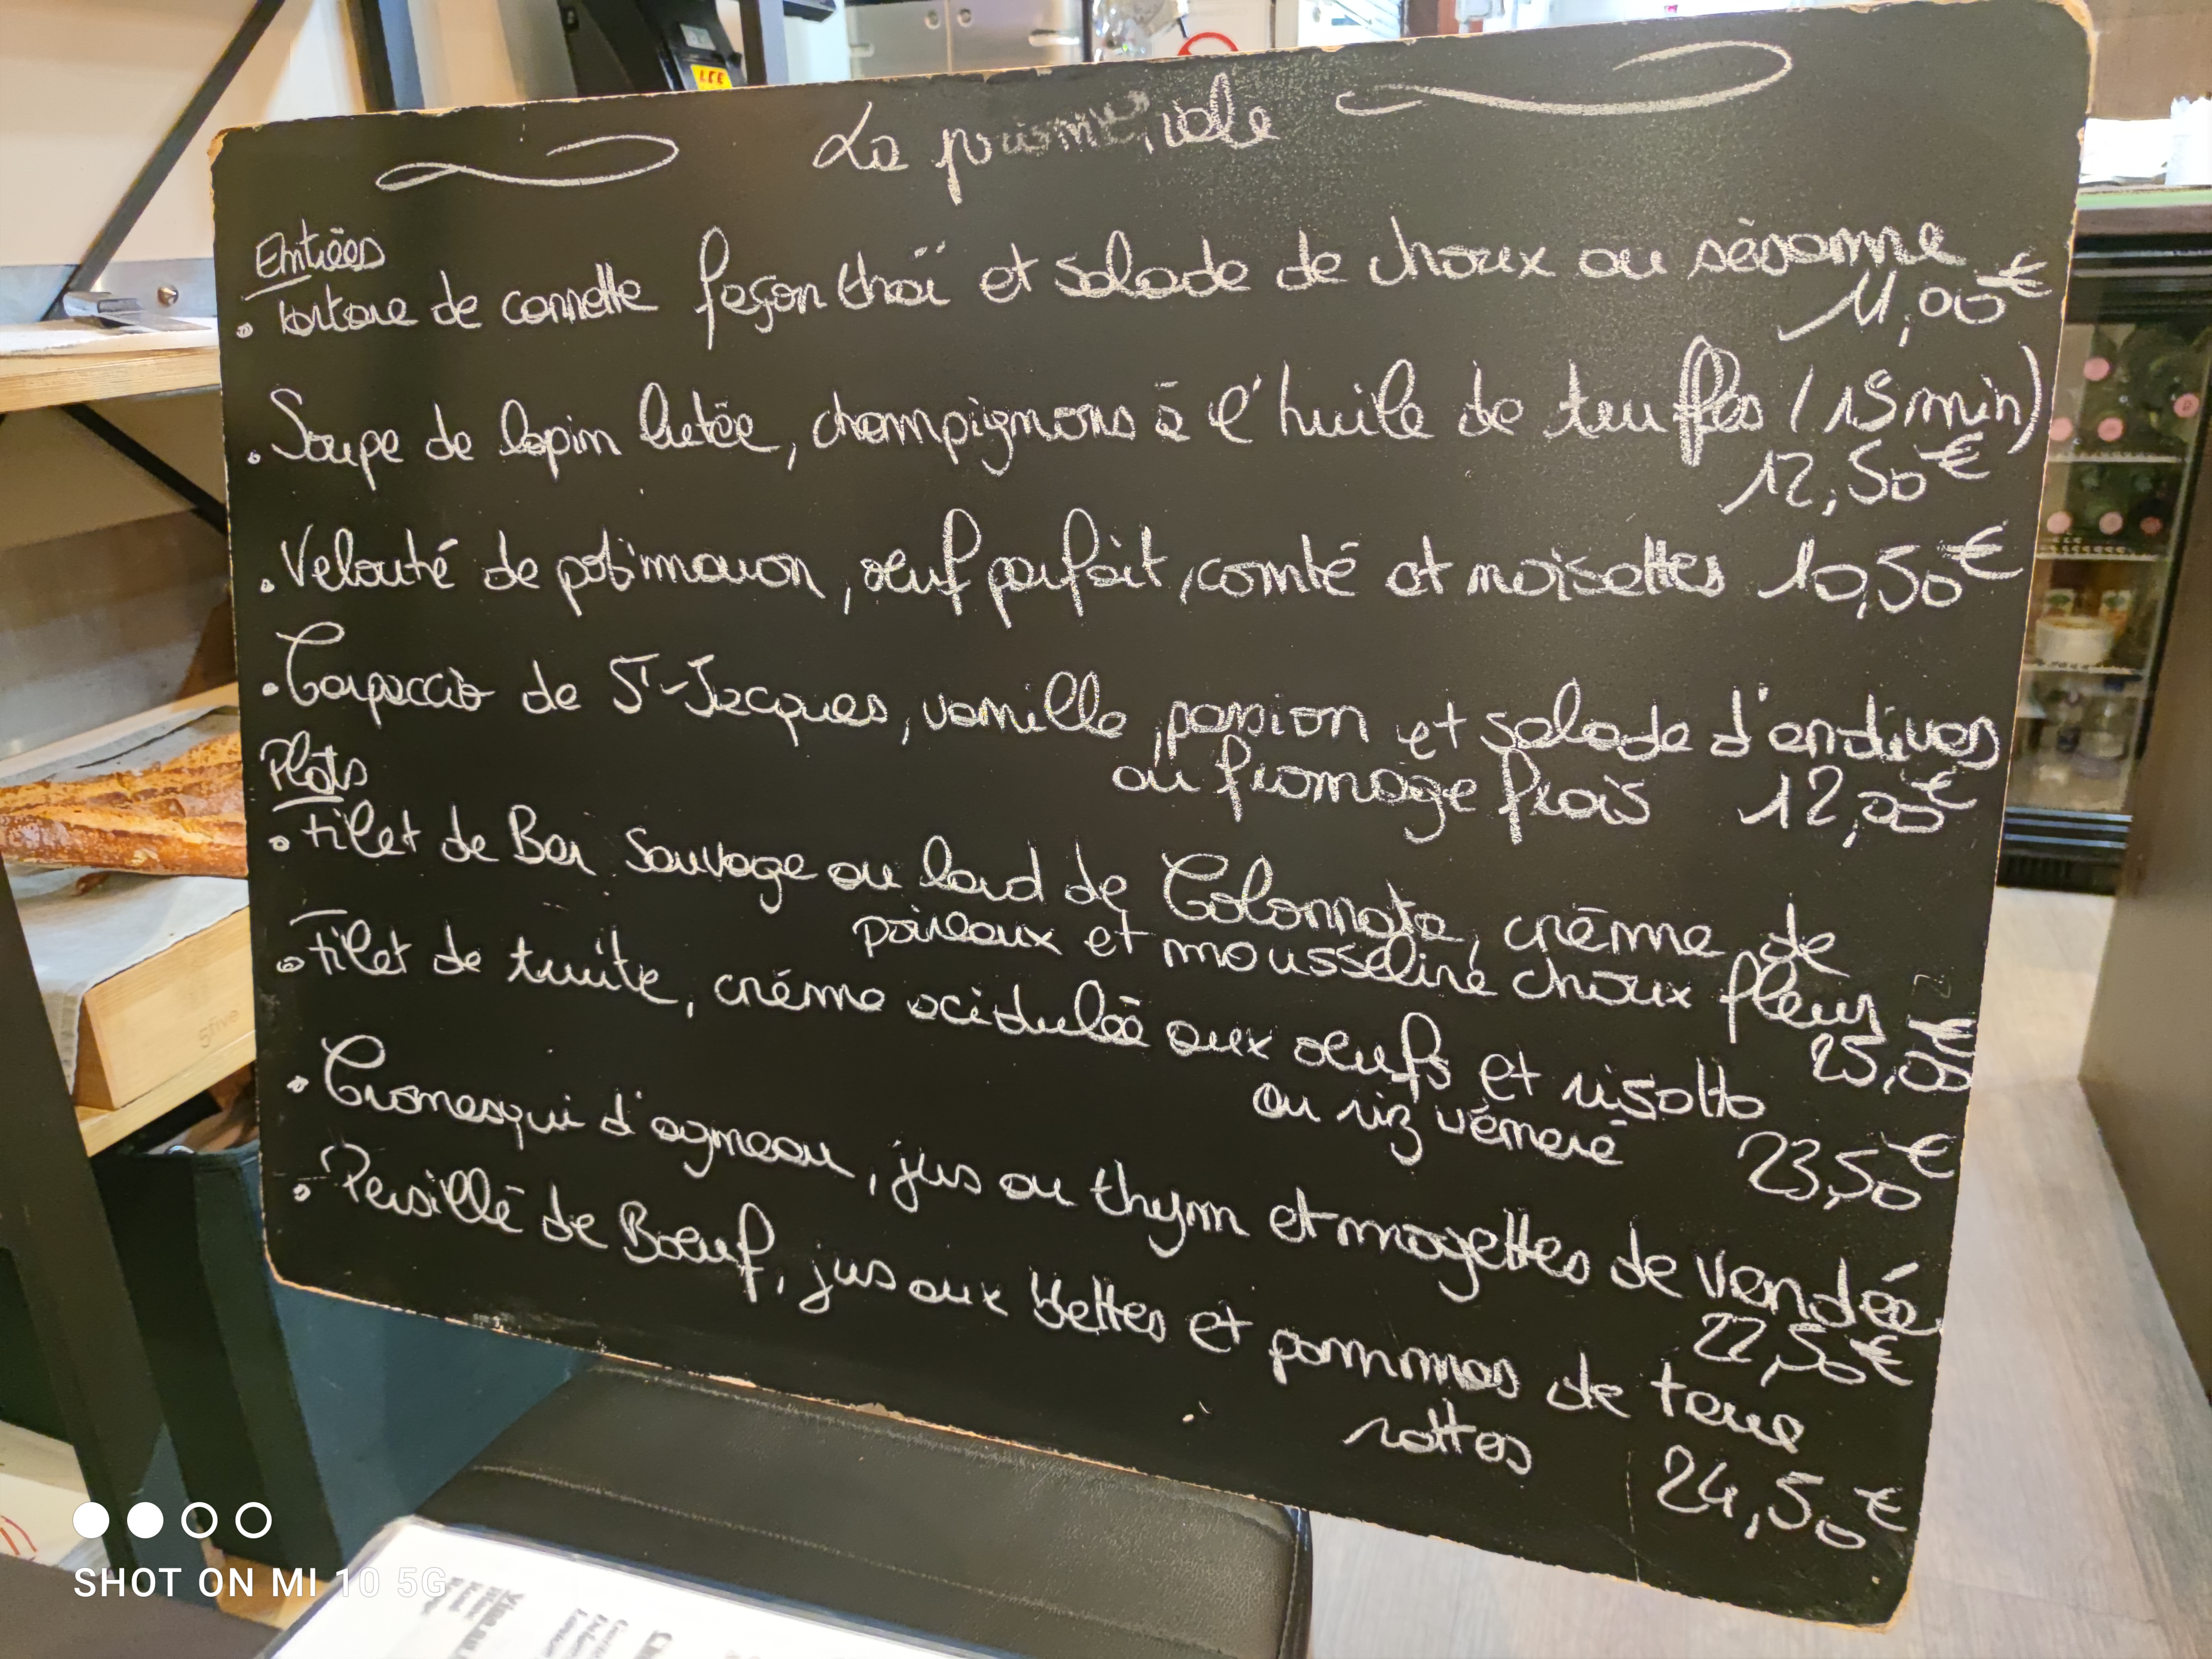 La primeviale
Entrées
• tartare de cannette façon thaï et salade de choux au sésame
11,00€
• Soupe de lapin lutée, champignons à l'huile de truffes (15 min)
12,50€
• Velouté de potimarron, œuf parfait, comté et noisettes 10,50€
• Carpaccio de ST-Jacques, vanille, passion et salade d'endives
au fromage frais 12,00€
Plats
• Filet de Bar Sauvage au lard de Colonnata, crème de
poireaux et mousseline choux fleur
25,00€
• Filet de truite, crème acidulée aux œufs et risotto
au riz vénéré 23,50€
• Cromesqui d'agneau, jus au thym et mogettes de Vendée
22,50€
• Persillé de Boeuf, jus aux blettes et pommes de terre
rattes 24,50€
5five
SHOT ON MI 10 5G